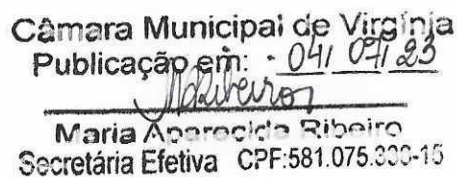 Câmara Municipal de Virgínia
Publicação em: 04/07/23
MARibeiro
Maria Aparecida Ribeiro
Secretária Efetiva CPF:581.075.336-15